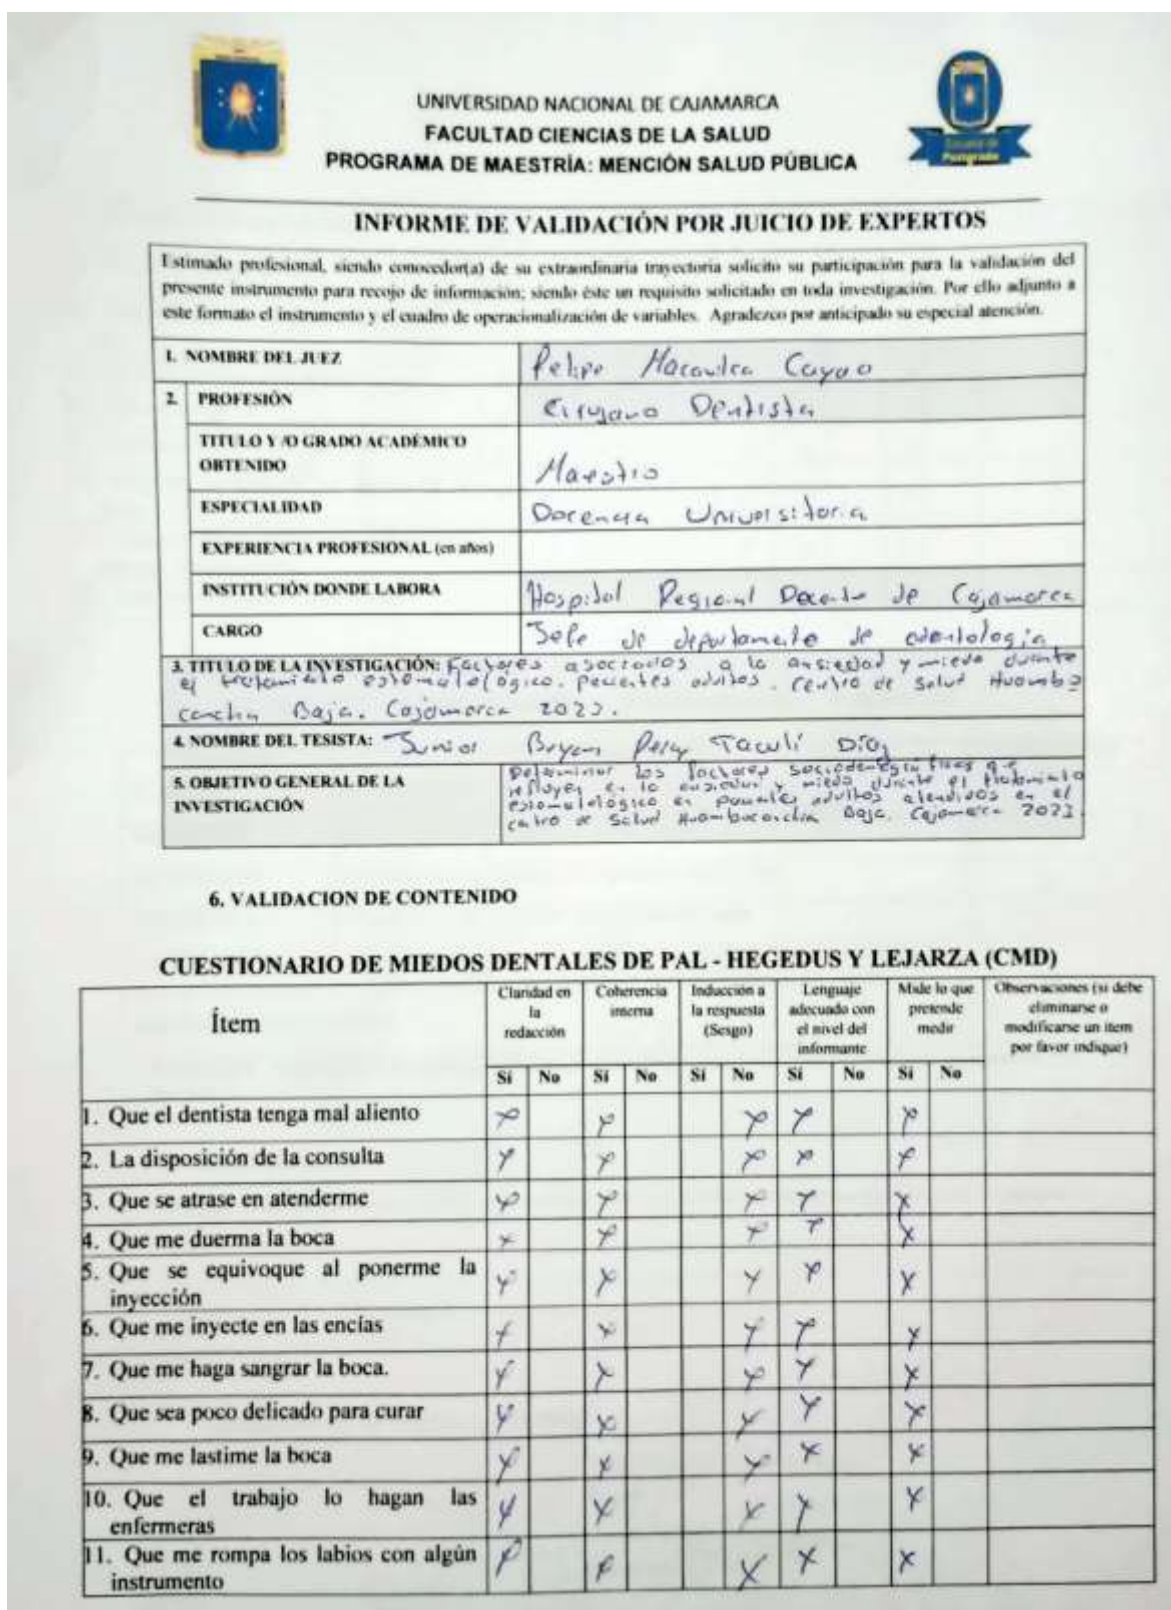 UNIVERSIDAD NACIONAL DE CAJAMARCA
FACULTAD CIENCIAS DE LA SALUD
PROGRAMA DE MAESTRÍA: MENCIÓN SALUD PÚBLICA
Escuela de
Postgrado
INFORME DE VALIDACIÓN POR JUICIO DE EXPERTOS
Estimado profesional, siendo conocedor(a) de su extraordinaria trayectoria solicito su participación para la validación del
presente instrumento para recojo de información; siendo éste un requisito solicitado en toda investigación. Por ello adjunto a
este formato el instrumento y el cuadro de operacionalización de variables. Agradezco por anticipado su especial atención.
1. NOMBRE DEL JUEZ
Felipe
2. PROFESIÓN
Cirujano Dentista
TITULO Y /O GRADO ACADÉMICO
OBTENIDO
Maestro
ESPECIALIDAD
Docencia Universitaria
EXPERIENCIA PROFESIONAL (en años)
INSTITUCIÓN DONDE LABORA
Hospital Regional Docente de Cajamarca
CARGO
Jefe de departamento de odontologia
3. TITULO DE LA INVESTIGACIÓN: Factores asociados a la ansiedad y miedo durante
el tratamiento estomatológico. pacientes adultos. Centro de Salud Huambo
cancha Baja. Cajamarca
4. NOMBRE DEL TESISTA: Junior Bryan Taculi Díaz
5. OBJETIVO GENERAL DE LA
INVESTIGACIÓN
Determinar los factores sociodemográficos que
influyen en la ansiedad y miedo durante el tratamiento
estomatológico en pacientes adultos atendidos en el
centro de Salud Huambocancha Baja. Cajamarca
6. VALIDACION DE CONTENIDO
CUESTIONARIO DE MIEDOS DENTALES DE PAL - HEGEDUS Y LEJARZA (CMD)
Ítem
Claridad en
la
redacción
Coherencia
interna
Inducción a
la respuesta
(Sesgo)
Lenguaje
adecuado con
el nivel del
informante
Mide lo que
pretende
medir
Observaciones (si debe
eliminarse o
modificarse un ítem
por favor indique)
Sí No Sí No Sí No Sí No Sí No
1. Que el dentista tenga mal aliento
2. La disposición de la consulta
3. Que se atrase en atenderme
4. Que me duerma la boca
5. Que se equivoque al ponerme la
inyección
6. Que me inyecte en las encías
7. Que me haga sangrar la boca.
8. Que sea poco delicado para curar
9. Que me lastime la boca
10. Que el trabajo lo hagan las
enfermeras
11. Que me rompa los labios con algún
instrumento